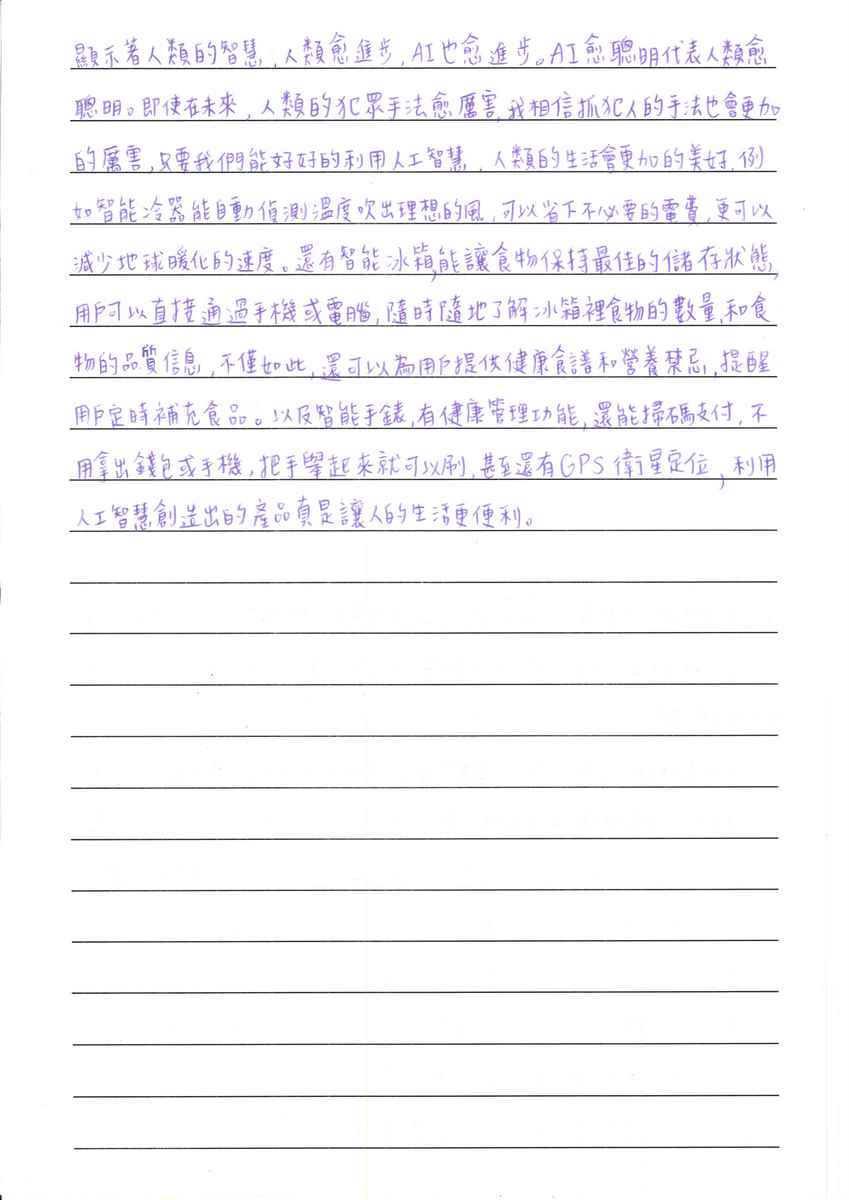 顯示著人類的智慧,人類愈進步,AI也愈進步。AI愈聰明代表人類愈
聰明。即使在未來,人類的犯罪手法愈厲害,我相信抓犯人的手法也會更加
的厲害,只要我們能好好的利用人工智慧,人類的生活會更加的美好,例
如智能冷器能自動偵測溫度吹出理想的風,可以省下不必要的電費,更可以
減少地球暖化的速度。還有智能冰箱,能讓食物保持最佳的儲存狀態,
用戶可以直接通過手機或電腦,隨時隨地了解冰箱裡食物的數量,和食
物的品質信息,不僅如此,還可以為用戶提供健康食譜和營養禁忌,提醒
用戶定時補充食品。以及智能手錶,有健康管理功能,還能掃碼支付,不
用拿出錢包或手機,把手舉起來就可以刷,甚至還有GPS衛星定位,利用
人工智慧創造出的產品真是讓人的生活更便利。